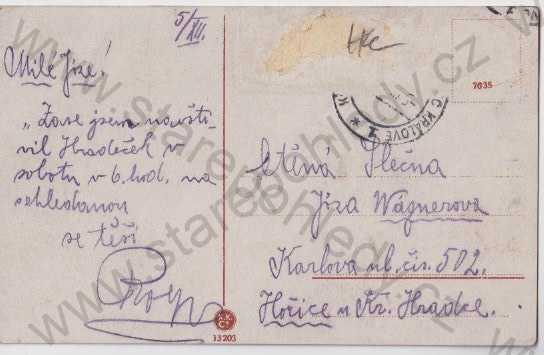 5/XII.
Milé Jize!
„Zase jsem navští-
vil Hradeček v
sobotu v 6. hod. na
shledanou
se těší
HKc
7635
C KRÁLOVÉ
1 * K
Ctěná Slečna
Jiza Wágnerova
Karlova ul. čís. 502.
Hořice u Kr. Hradce.
13203
www.starepohledy.cz